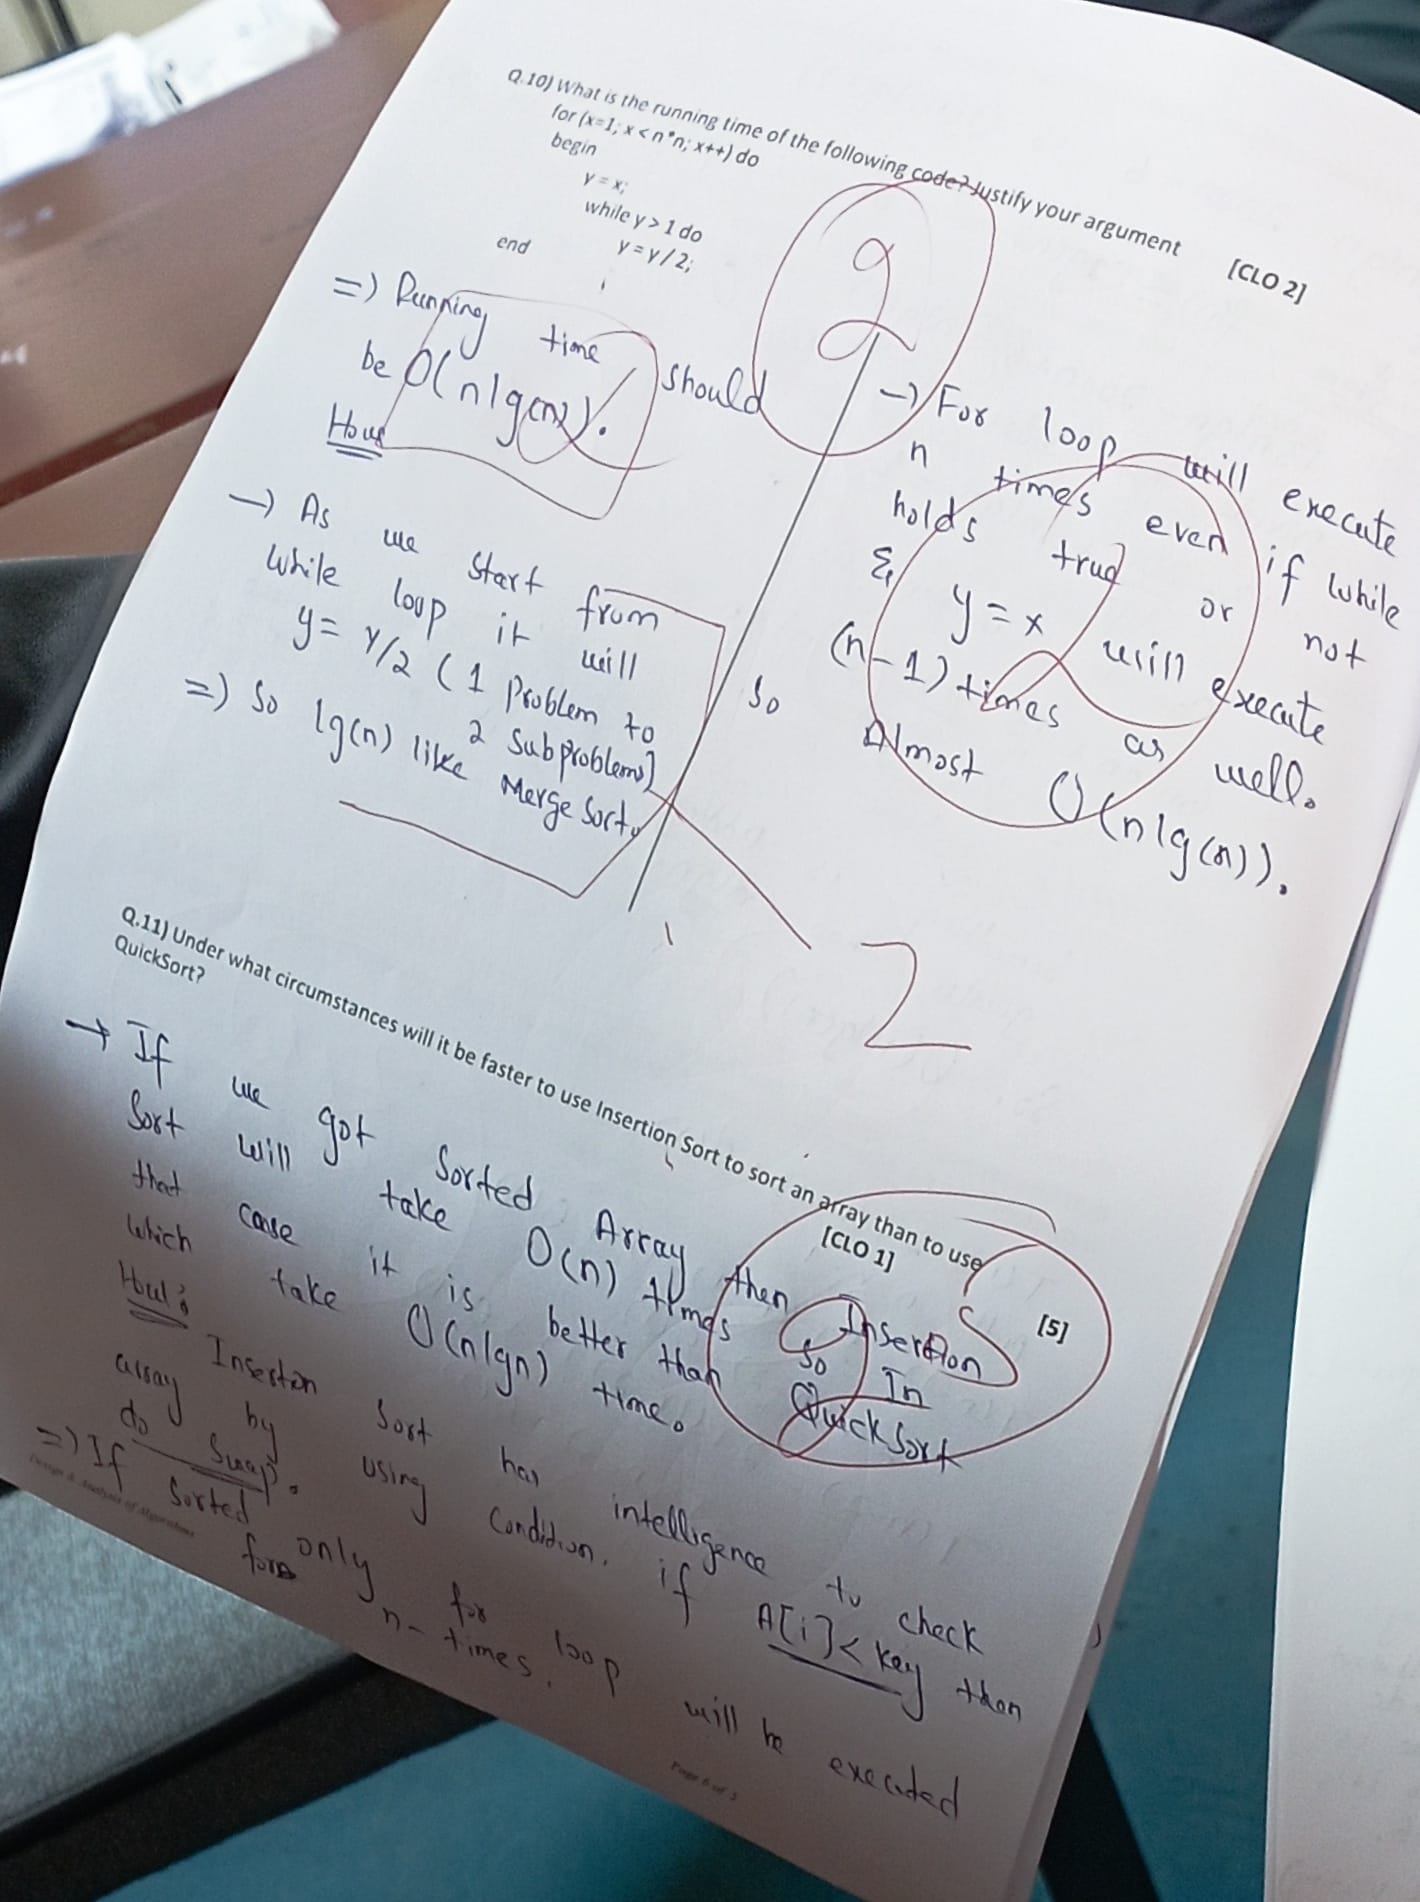 Q.10) What is the running time of the following code? Justify your argument [CLO 2]
for (x=1; x < n*n; x++) do
begin
y = x;
while y > 1 do
y = y / 2;
end
2
=) Running time should
be O(nlg(n)).
How
-) As we start from
while loop it will
y = y/2 ( 1 Problem to
2 Subproblems)
=) So lg(n) like Merge Sort.
-) For loop will execute
n times even if while
holds true or not
& y = x will execute
(n-1) times as well.
So Almost O(nlg(n)).
2
Q.11) Under what circumstances will it be faster to use Insertion Sort to sort an array than to use
QuickSort? [CLO 1] [5]
→ If we got Sorted Array then Insertion
Sort will take O(n) times so In
that case it is better than QuickSort
which take O(nlgn) time.
Insertion Sort has intelligence to check
array by using Condition. if A[i]< key then
do Swap.
=) If Sorted only for loop will be executed
n-times.
Design & Analysis of Algorithms
Page 6 of 5